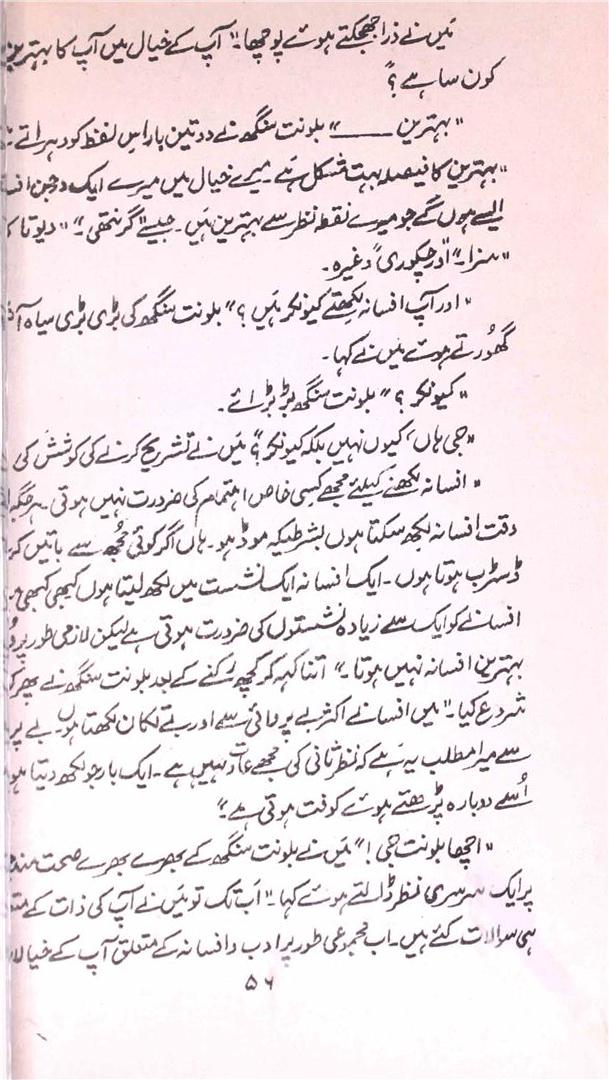 مَیں نے ذرا جھجکتے ہوئے پوچھا۔" آپ کے خیال میں آپ کا بہترین
کون سا ہے؟"
"بہترین ——" بلونت سنگھ نے دو تین بار اس لفظ کو دہراتے
"بہترین کا فیصلہ بہت مشکل ہے۔ میرے خیال میں میرے ایک دو جن
ایسے ہوں گے جو میرے نقطہ نظر سے بہترین ہیں۔ جیسے "گرنتھی۔" "دیوتا کا
"سزا۔" اور چکوری" وغیرہ۔
"اور آپ افسانہ لکھتے کیونکر ہیں؟" بلونت سنگھ کی بڑی بڑی سیاہ
گھُورتے ہوئے میں نے کہا۔
"کیونکر؟" بلونت سنگھ بڑبڑائے۔
"جی ہاں کیوں نہیں بلکہ کیونکر؟" مَیں نے تشریح کرنے کی کوشش کی
"افسانہ لکھنے کیلئے مجھے کسی خاص اہتمام کی ضرورت نہیں ہوتی۔ ہر جگہ
وقت افسانہ لکھ سکتا ہوں بشرطیکہ موڈ ہو۔ ہاں اگر کوئی مُجھ سے باتیں
ڈسٹرب ہوتا ہوں۔ ایک افسانہ ایک نشست میں لکھ لیتا ہوں کبھی کبھی
افسانے کو ایک سے زیادہ نشستوں کی ضرورت ہوتی ہے لیکن لازمی طور پر
بہترین افسانہ نہیں ہوتا۔" اتنا کہہ کر کچھ رُکنے کے بعد بلونت سنگھ نے پھر
شروع کیا۔" میں افسانے اکثر بے پروائی سے اور بے تکان لکھتا ہوں۔ بے
سے میرا مطلب یہ ہے کہ نظر ثانی کی مجھے عادت نہیں ہے۔ ایک بار جو لکھ دیتا
اُسے دوبارہ پڑھتے ہوئے کوفت ہوتی ہے۔"
"اچھا بلونت جی!" مَیں نے بلونت سنگھ کے بھرے بھرے صحت مند
پر ایک سرسری نظر ڈالتے ہوئے کہا۔" اَب تک تو مَیں نے آپ کی ذات کے
ہی سوالات کئے ہیں۔ اب مجموعی طور پر ادب و افسانہ کے متعلق آپ کے
۵۶